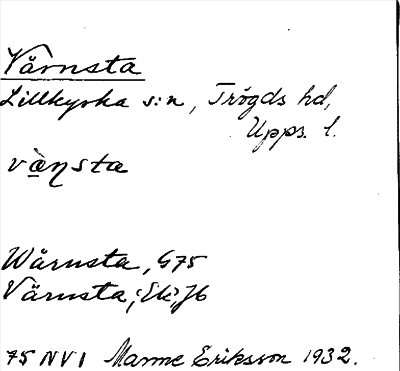 Vårnsta
Lillkyrka s:n, Trögds hd,
Upps. l.
vȧ̀ṉsta
Wårnsta, G75
Värnsta, Ek, Jb
75 NV1 Manne Eriksson 1932.